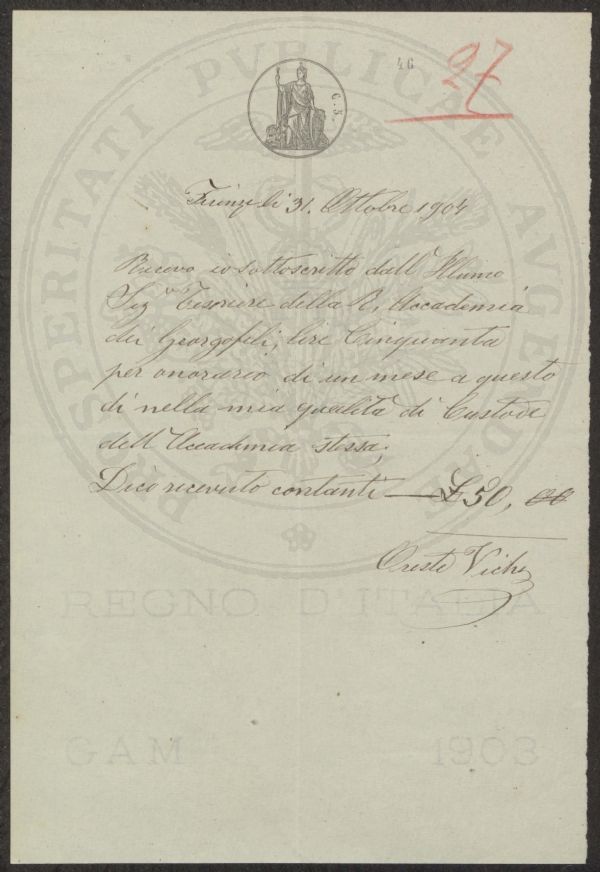 46
27
C. 5.
PROSPERITATI PVBLICAE AVGENDAE
Firenze li 31. Ottobre 1904
Ricevo io sottoscritto dall' Illumo
Sig Tesoriere della R. Accademia
dei Georgofili, lire Cinquanta
per onorario di un mese a questo
dì nella mia qualità di Custode
dell' Accademia stessa,
Dico ricevuto contanti — £ 50,
Oreste
REGNO D'ITALIA
GAM 1903